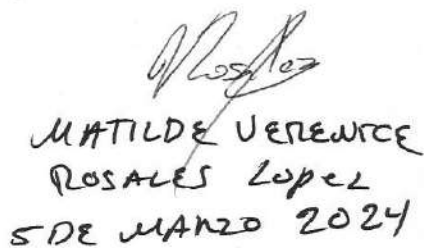 MATILDE VERENICE
ROSALES LOPEZ
5 DE MARZO 2024